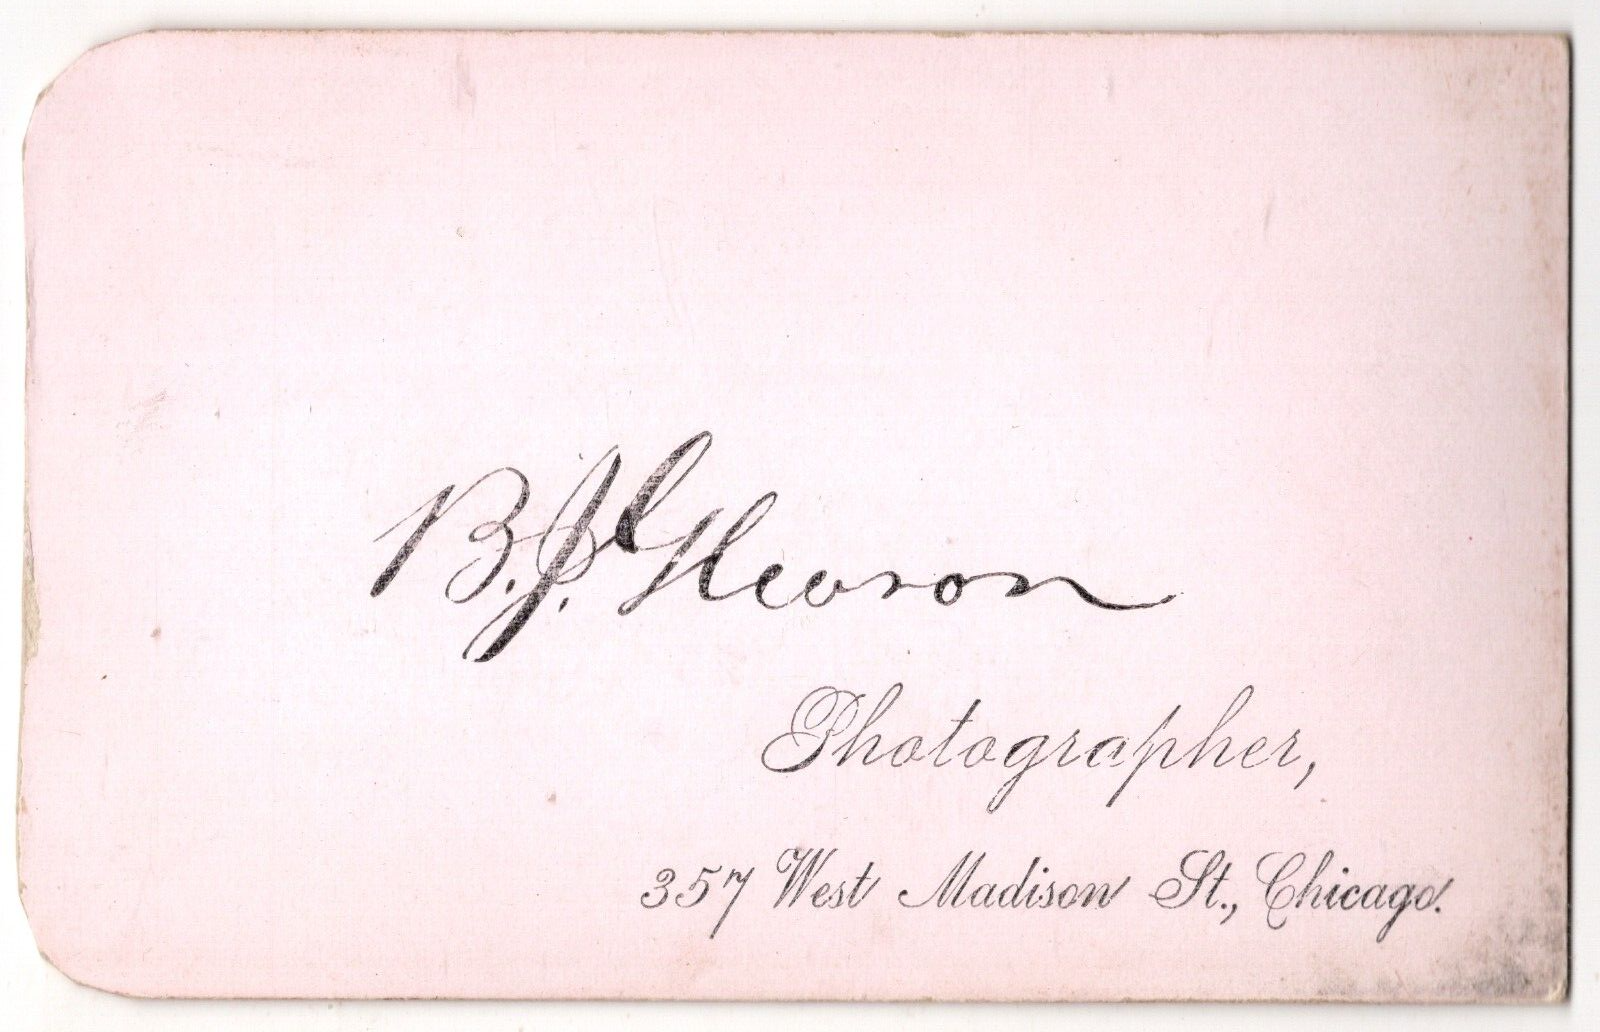 B. J. Hewson
Photographer,
357 West Madison St., Chicago.